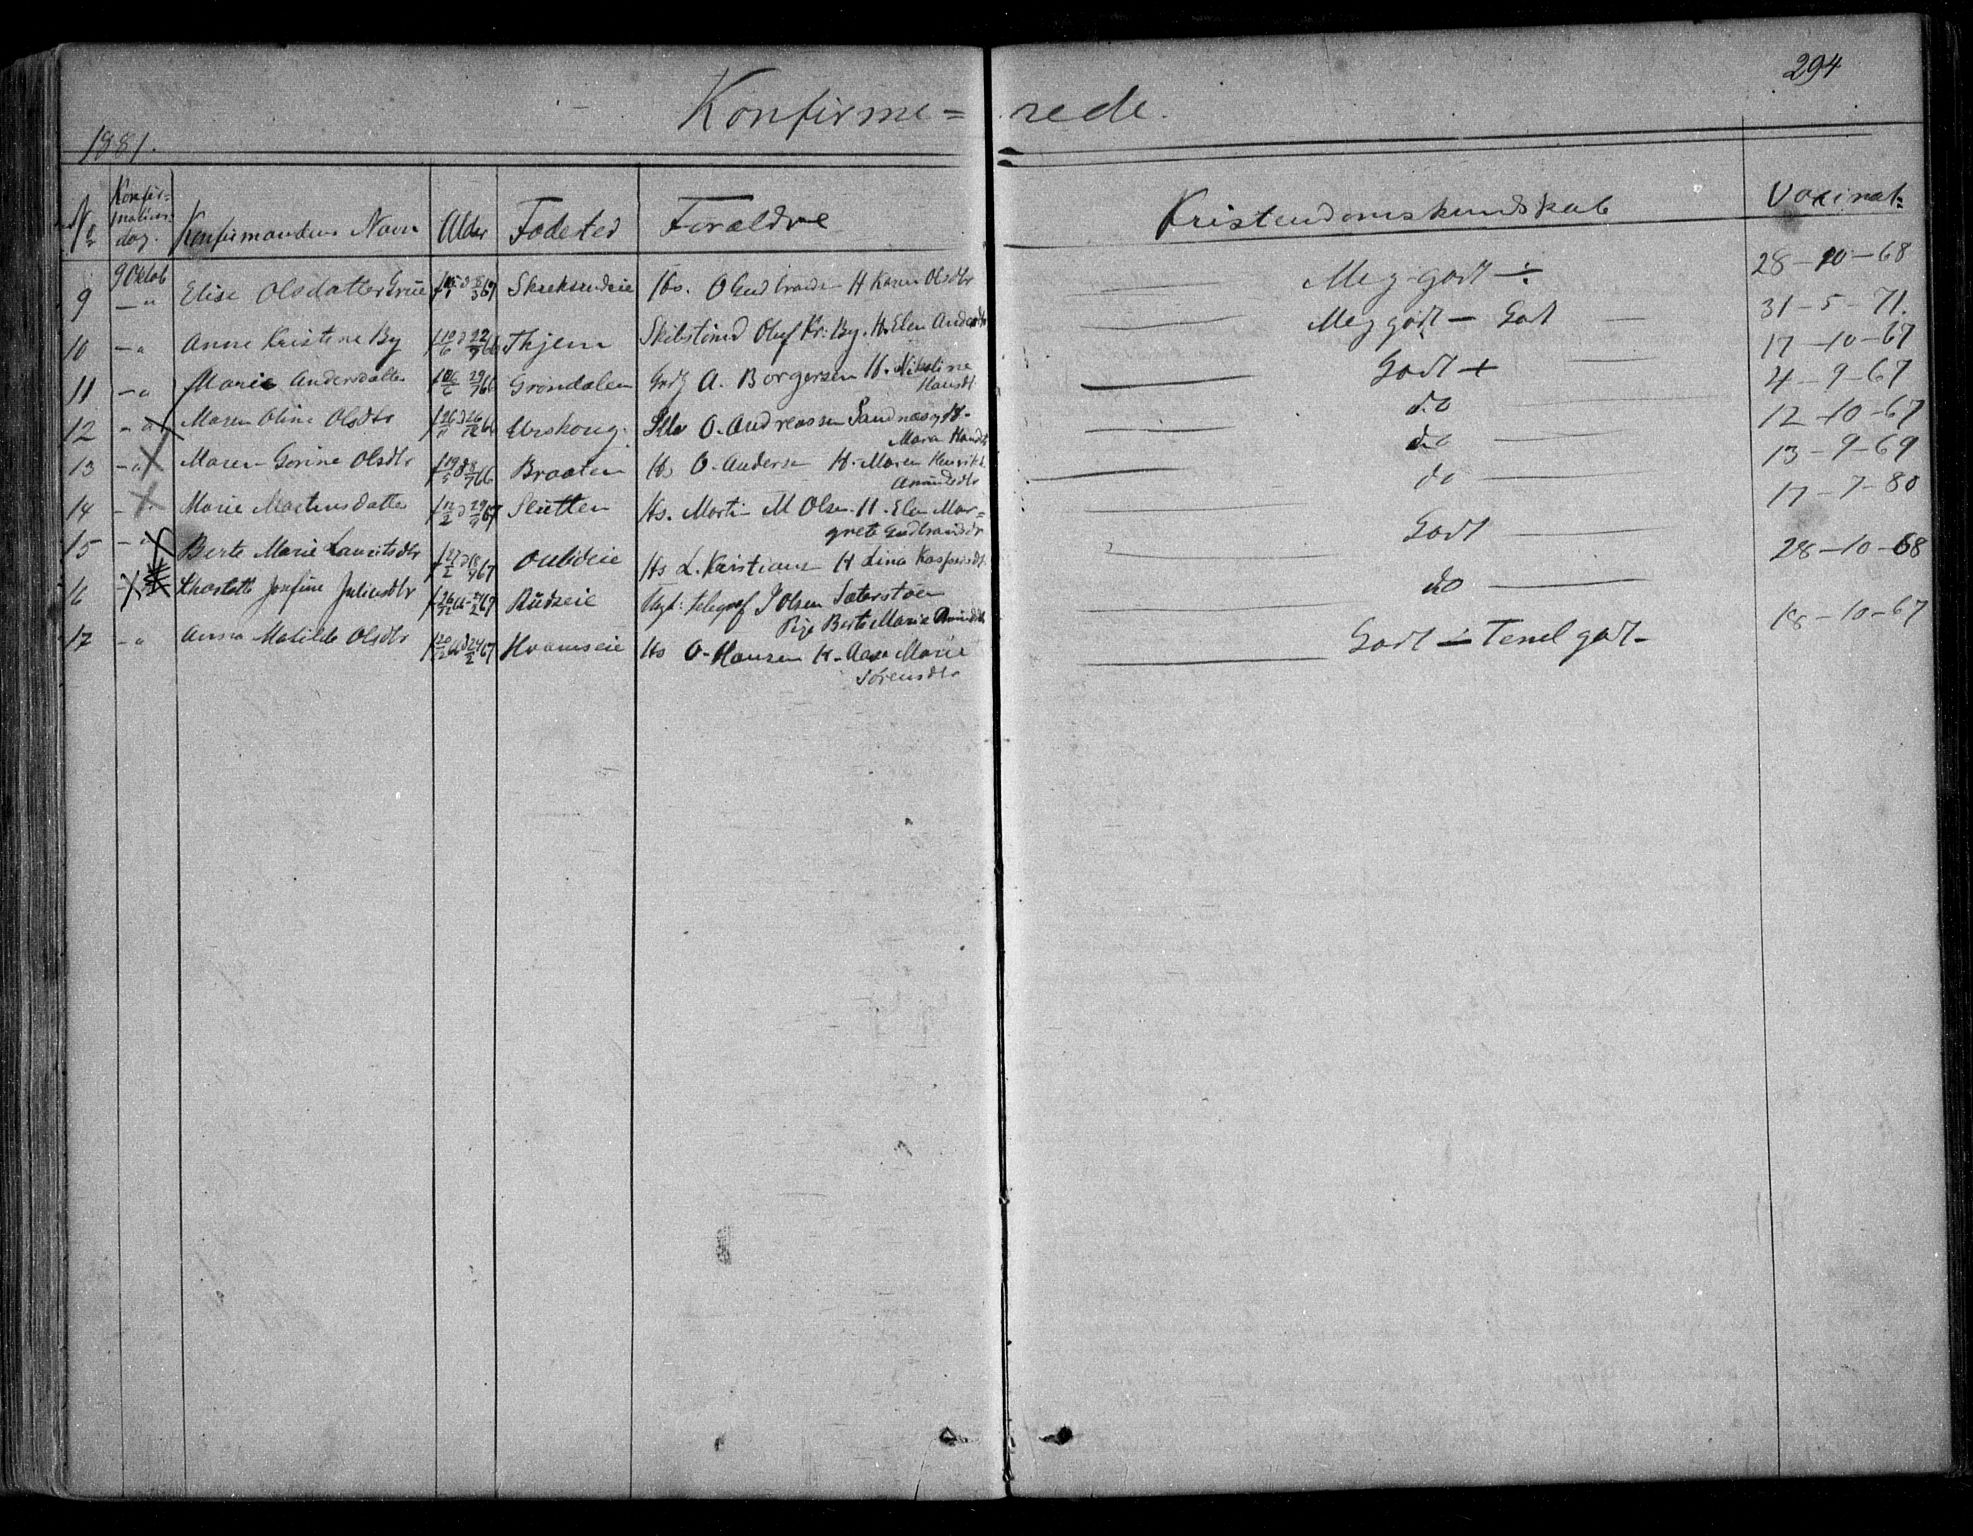 294
Konfirme= rede.
1881.
No Konfir-mations dag. Konfirmandens Navn Alder Fødested Forældre Kristendomskundskab Vaxinat:
9 9 Oktob -"- Elise Olsdatter Grue Hs. O Gudbrandsen H Karen Olsdtr Meg godt ÷ 28-10-68
10 -"- Anne Kristine By Thjem Skibstømd Oluf Kr: By. H. Elen Andersdtr Meg godt - Godt 31-5-71.
11 -"- Marie Andersdatter Grøndalen Grdj A. Borgersen H. Nikoline Hansdt Godt + 17-10-67
12 -"- Maren Oline Olsdtr Urskoug. O. Andreassen Sandnæs og H. Maren Hansdtr do 4-9-67
13 -"- Maren Gorine Olsdtr Braaten Hs O. Andersen H. Maren Henrikke Amundsdtr do 12-10-67
14 -"- Marie Martinsdatter Slutten Hs. Martin M Olsen. H. Elen Mar=grete Gudbrandsdr do 13-9-69
15 Berte Marie Lauritsdtr Oulideie Hs L. Kristiansen H Lina Kaspersdt. Godt 17-7-80
16 Jonfine Juliusdtr Rudseie Ugt: telegraf J Olsen Sæterstøen Pige Berte Marie do 28-10-68
17 -"- Anna Matilde Olsdtr Hvamseie Hs O. Hansen H. Aase Marie Sørensdtr Godt ÷ Temel godt - 18-10-67